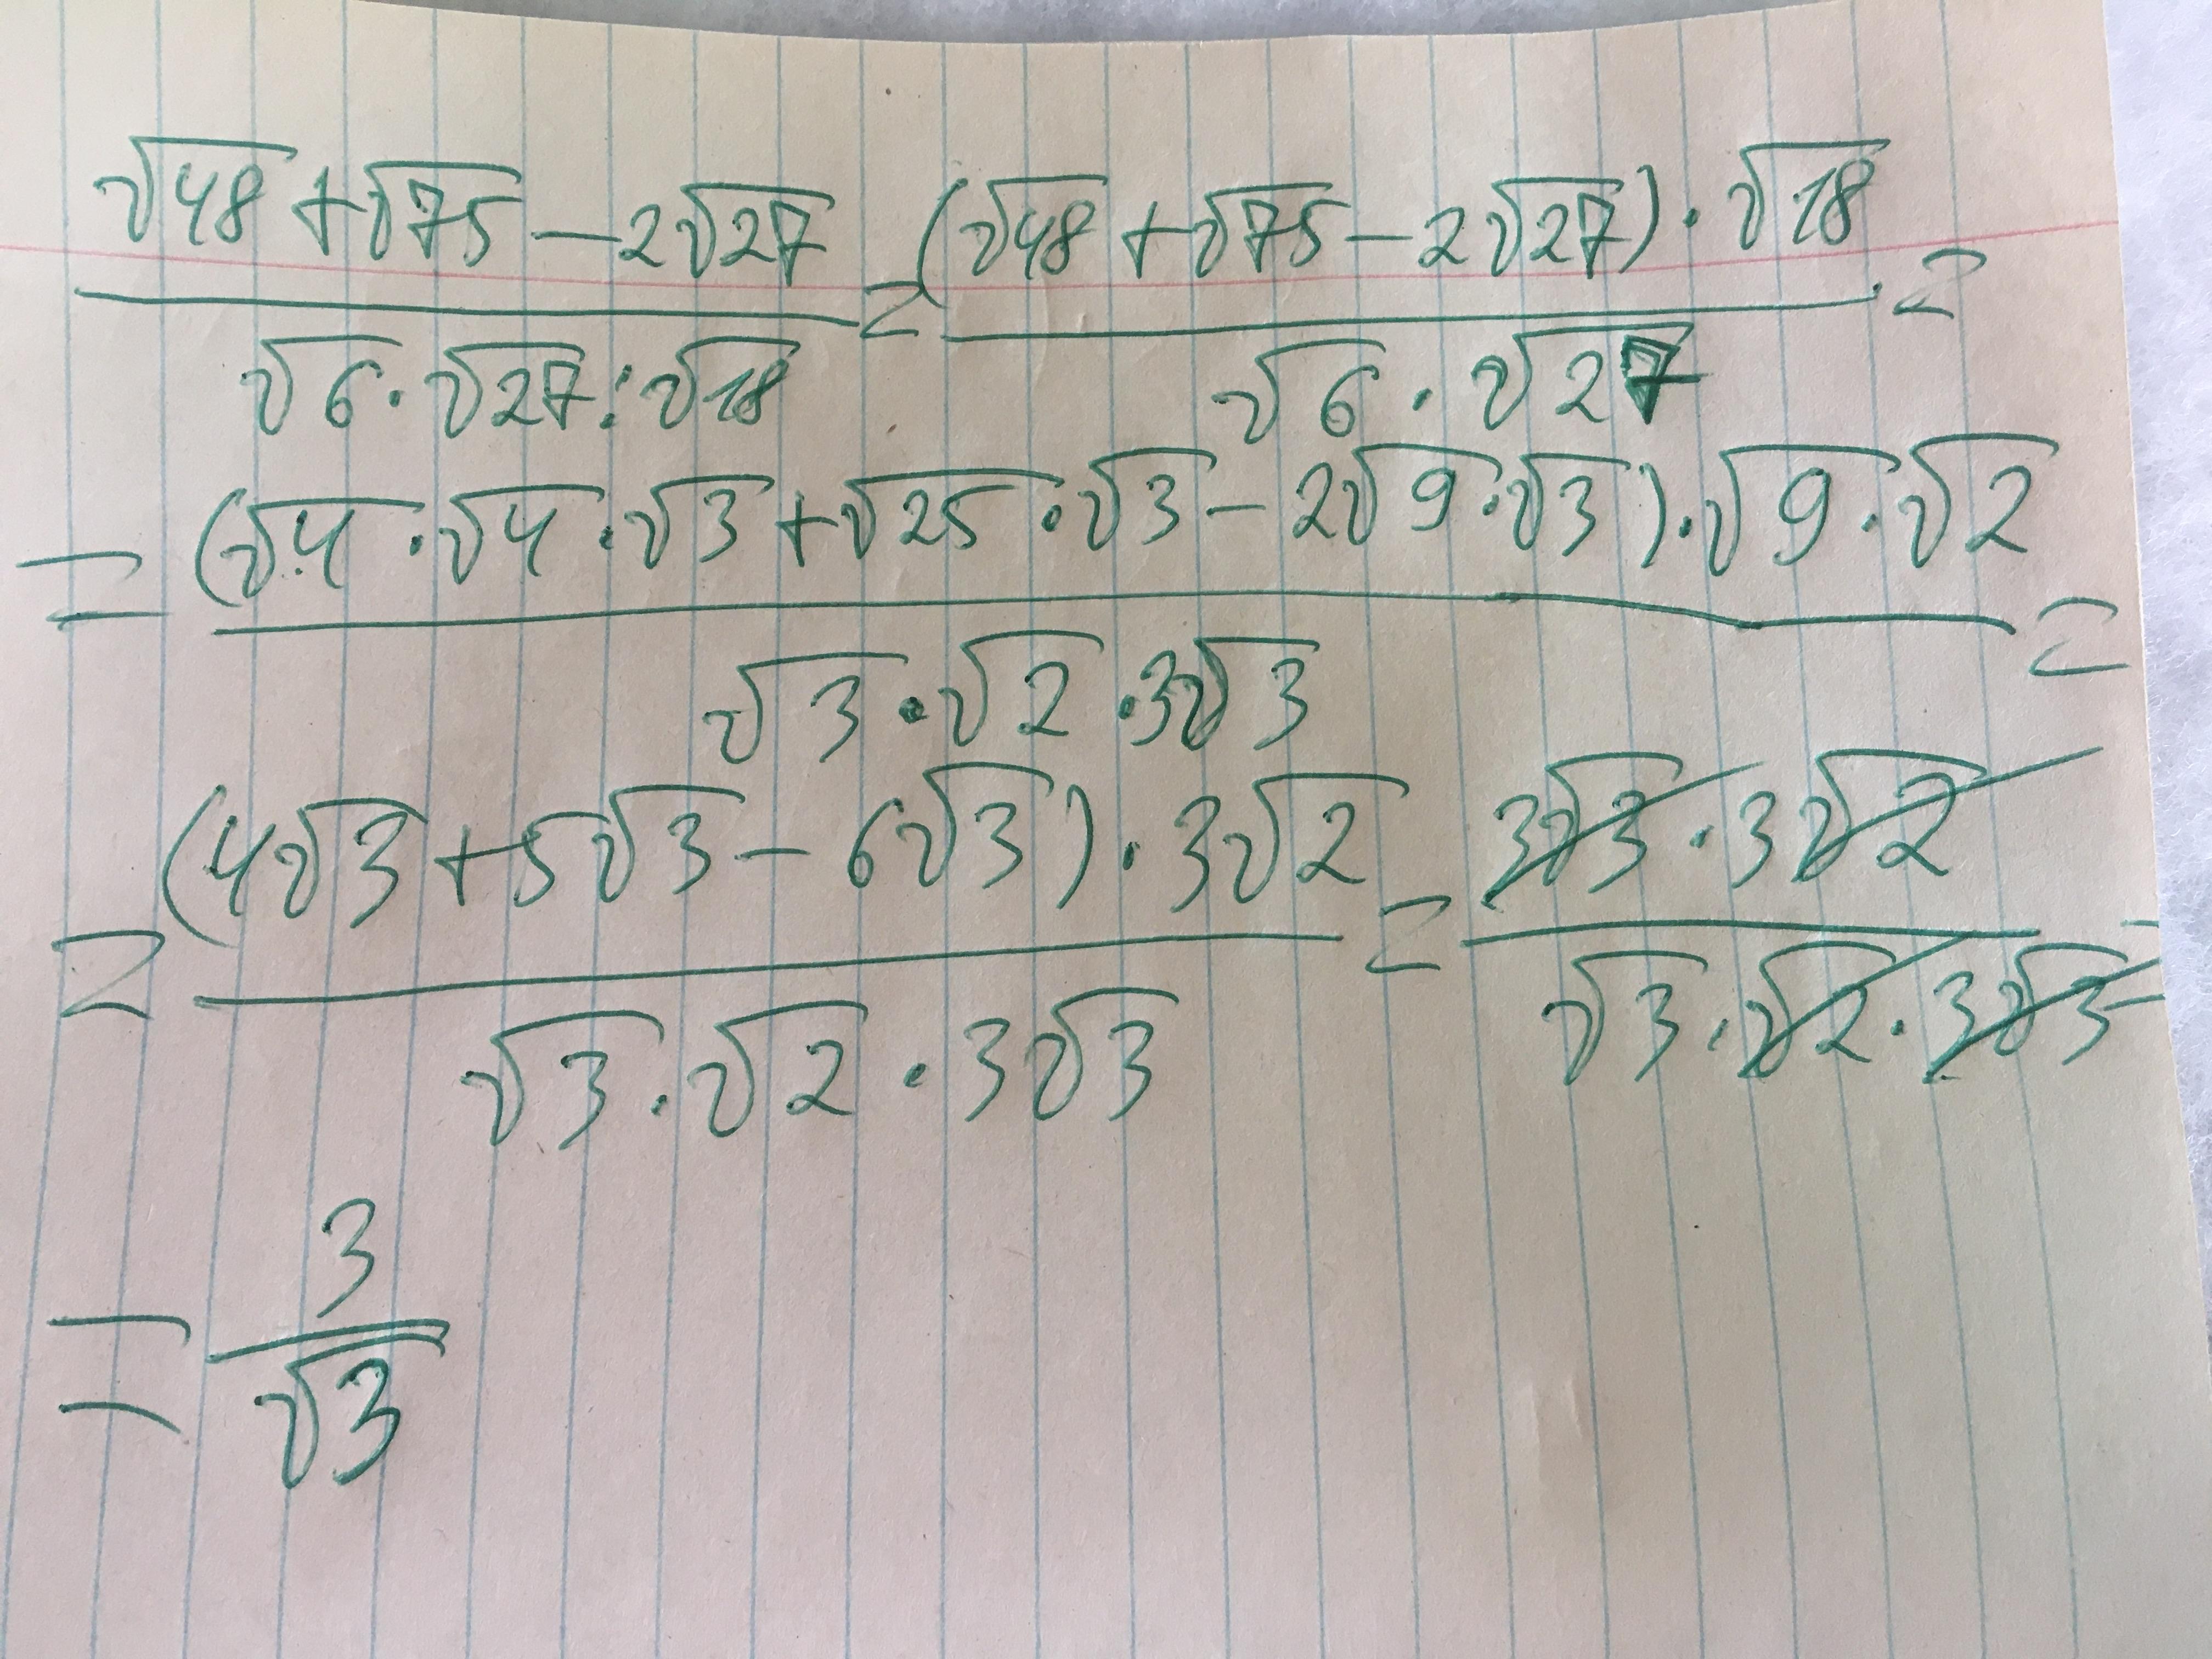 (√48 + √75 − 2√27) / (√6 · √27 : √18) = ((√48 + √75 − 2√27) · √18) / (√6 · √27) =
= ((√4 · √4 · √3 + √25 · √3 − 2√9 · √3) · √9 · √2) / (√3 · √2 · 3√3) =
= ((4√3 + 5√3 − 6√3) · 3√2) / (√3 · √2 · 3√3) = (3√3 · 3√2) / (√3 · √2 · 3√3) =
= 3 / √3